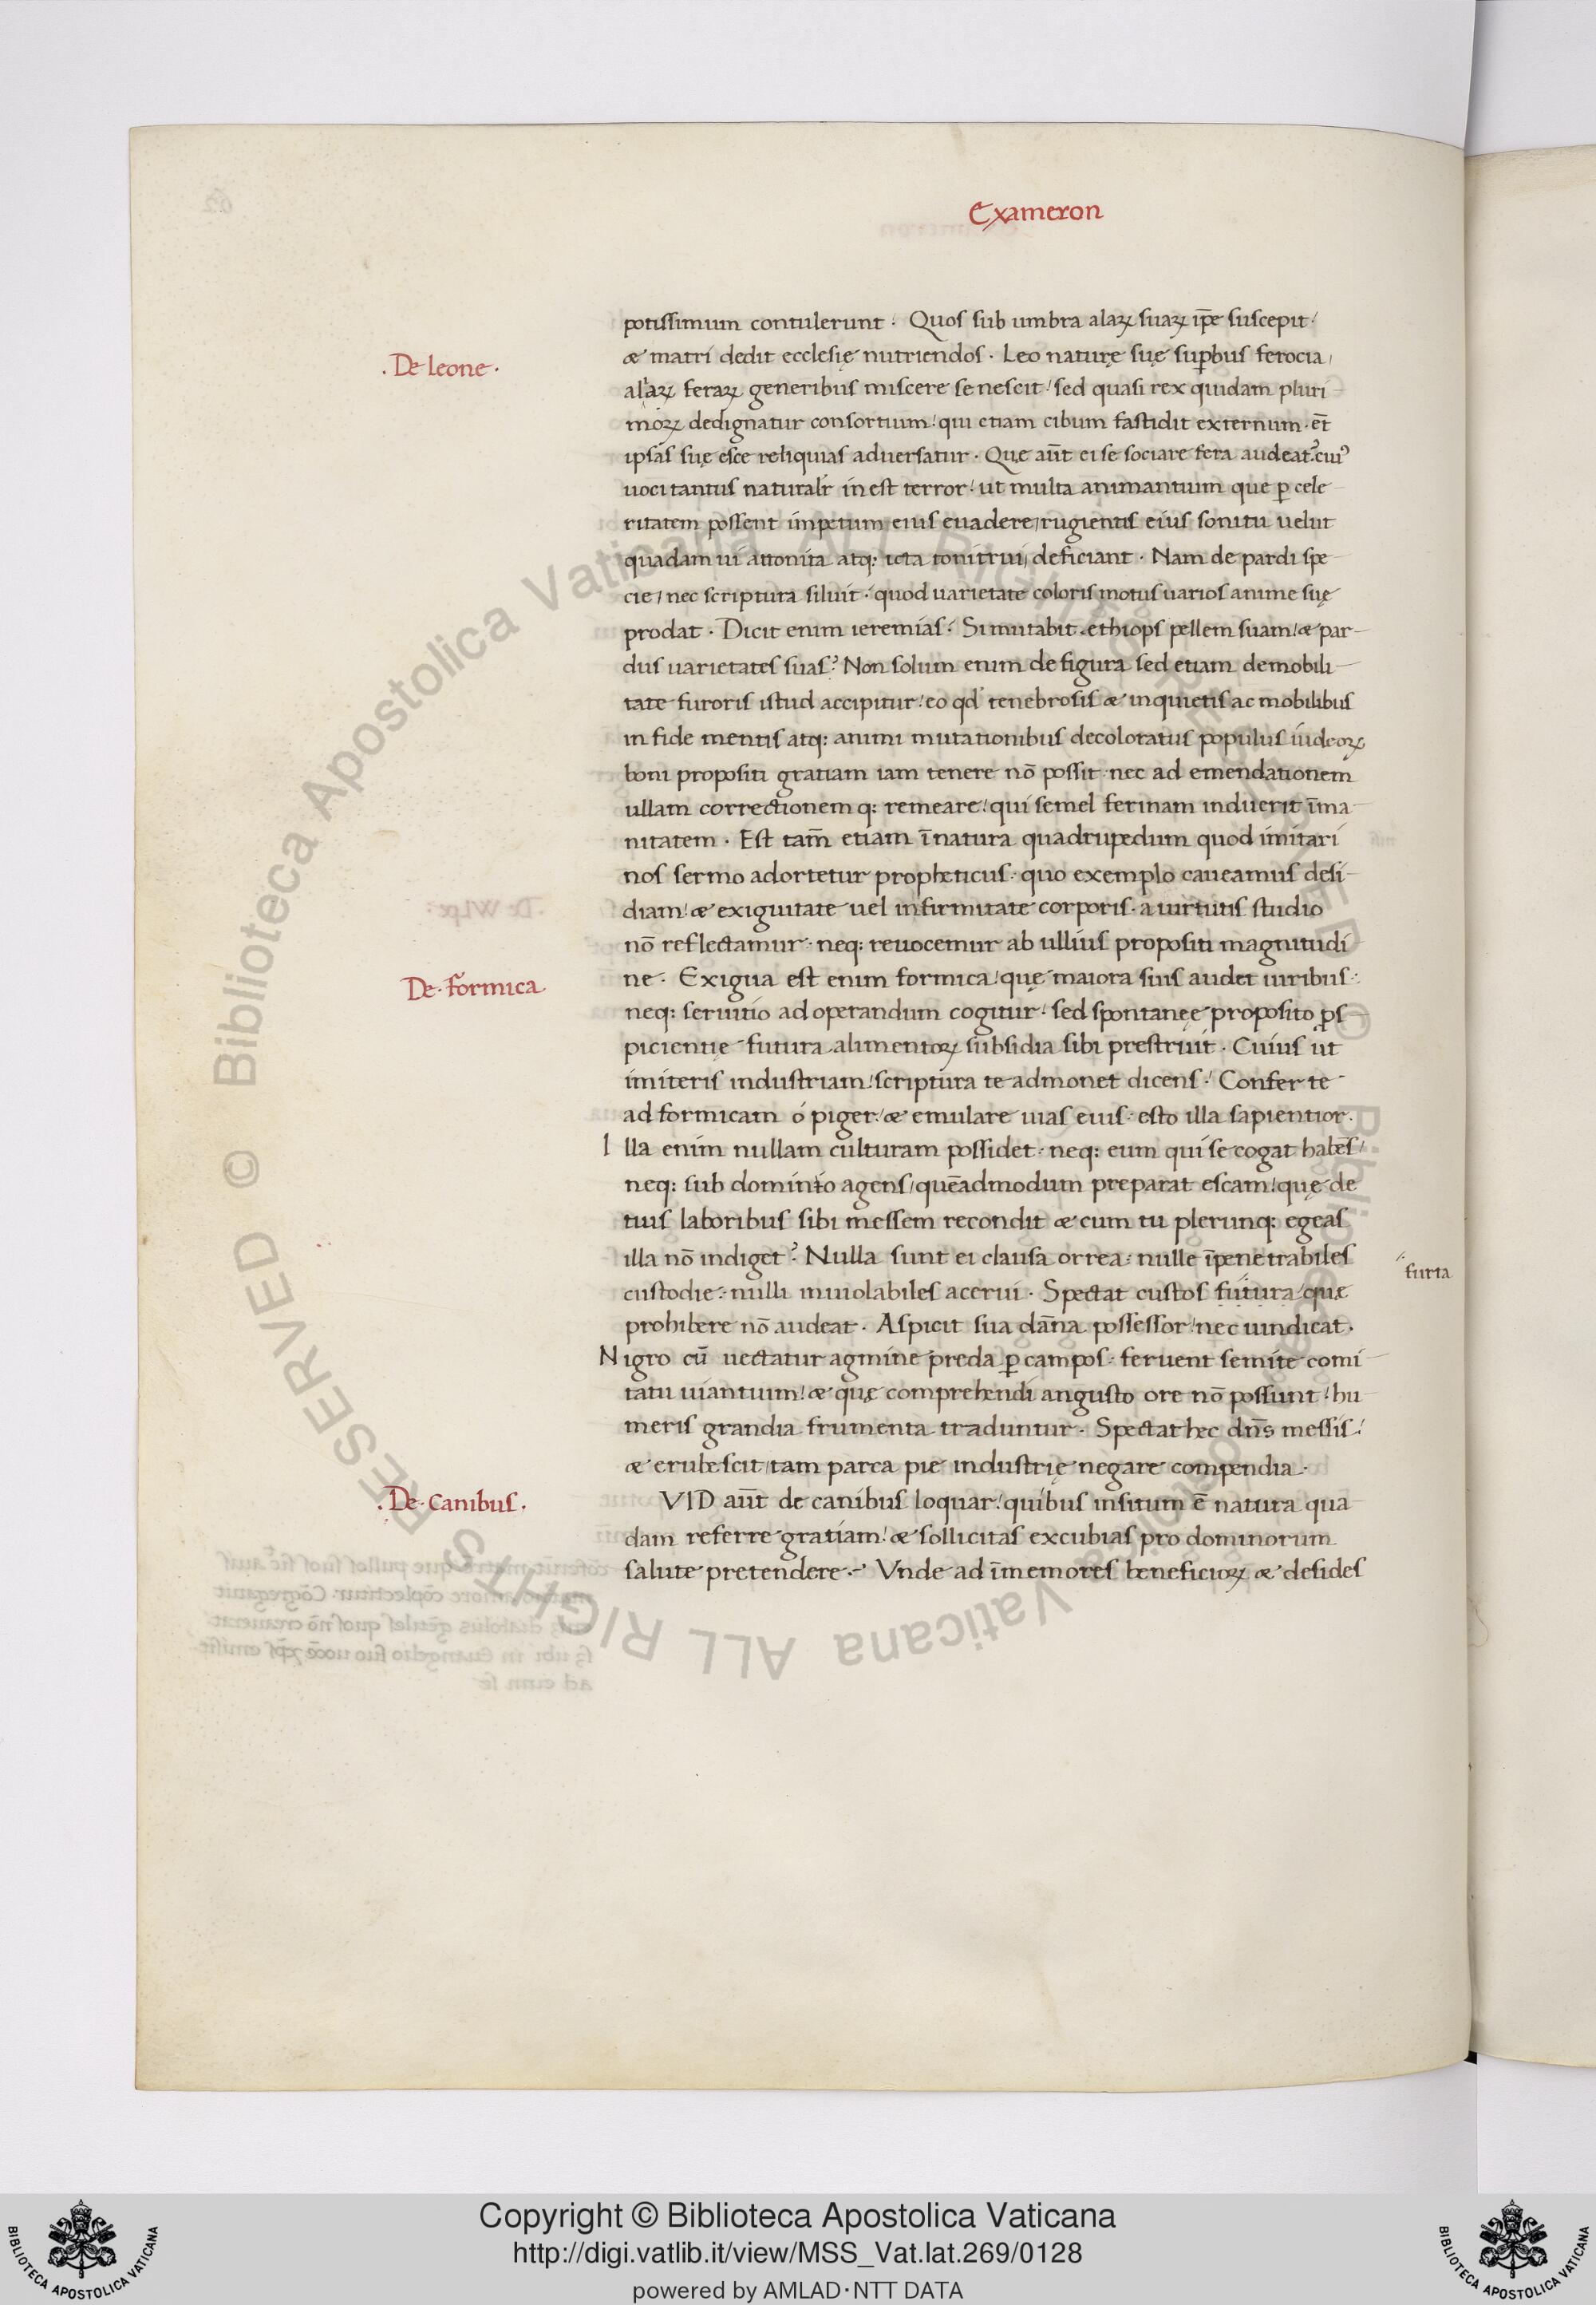 Exameron
potissimum contulerunt · Quos sub umbra alaꝝ suaꝝ ip̄e suscepit
& matri dedit ecclesię nutriendos · Leo naturę suę suꝑbus ferocia
aliaꝝ feraꝝ generibus miscere se nescit sed quasi rex quidam pluri
moꝝ dedignatur consortium qui etiam cibum fastidit externum · et̄
ipsas suę esce reliquias adversatur · Quę aut̄ ei se sociare fera audeat? cuiꝰ
De leone
voci tantus naturalr̄ in est terror ut multa animantium que ꝑ cele
ritatem possent impetum eius evadere rugientis eius sonitu velut
quadam vi attonita atq: icta tonitrui deficiant · Nam de pardi spe
cie nec scriptura siluit · quod varietate coloris motus varios anime suę
prodat · Dicit enim ieremias · Si mutabit ethiops pellem suam & par-
dus varietates suas? Non solum enim de figura sed etiam de mobili
tate furoris istud accipitur eo qd' tenebrosis & inquietis ac mobilibus
in fide mentis atq: animi mutationibus decoloratus populus iudeoꝝ
boni propositi gratiam iam tenere nō possit nec ad emendationem
ullam correctionem q: remeare qui semel ferinam induerit īma
nitatem · Est tam̄ etiam ī natura quadrupedum quod imitari
nos sermo adortetur propheticus · quo exemplo caveamus desi-
diam & exiguitate vel infirmitate corporis · a virtutis studio
nō reflectamur · neq: revocemur ab ullius propositi magnitudi
ne · Exigua est enim formica quę maiora suis audet viribus
De formica
neq: servitio ad operandum cogitur sed spontaneę proposito ꝓs
picientię futura alimentoꝝ subsidia sibi prestruit · Cuius ut
imiteris industriam scriptura te admonet dicens · Confer te
ad formicam ó piger & emulare vias eius · esto illa sapientior ·
Illa enim nullam culturam possidet · neq: eum qui se cogat habēs
neq: sub dominio agens quēadmodum preparat escam quę de
tuis laboribus sibi messem recondit & cum tu plerunq: egeas
illa nō indiget? Nulla sunt ei clausa orrea · nulle īpenetrabiles
custodie · nulli inviolabiles acervi · Spectat custos futura quę
furta
prohibere nō audeat · Aspicit sua dāna possessor nec vindicat ·
Nigro cū vectatur agmine preda ꝑ campos · fervent semite comi
tatu viantium & quę comprehendi angusto ore nō possunt hu
meris grandia frumenta traduntur · Spectat hec dn̄s messis
& erubescit tam parca pie industrię negare compendia ·
VID aut̄ de canibus loquar quibus insitum ē natura qua
De Canibus
dam referre gratiam & sollicitas excubias pro dominorum
salute pretendere · Vnde ad īmemores beneficioꝝ & desides
Copyright © Biblioteca Apostolica Vaticana
http://digi.vatlib.it/view/MSS_Vat.lat.269/0128
powered by AMLAD·NTT DATA
BIBLIOTECA APOSTOLICA VATICANA
BIBLIOTECA APOSTOLICA VATICANA
Biblioteca Apostolica Vaticana ALL RIGHTS RESERVED ©
Biblioteca Apostolica Vaticana ALL RIGHTS RESERVED ©